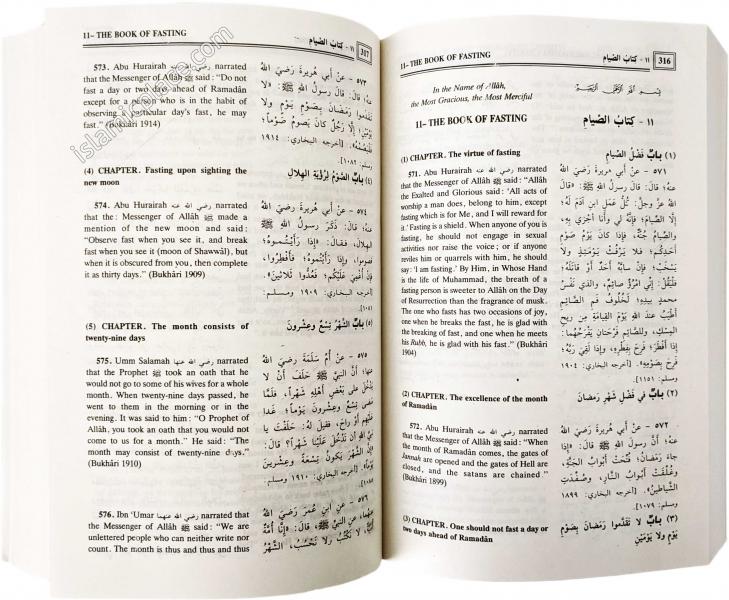 11– THE BOOK OF FASTING
١١ - كتاب الصيام
316
In the Name of Allâh,
the Most Gracious, the Most Merciful
11– THE BOOK OF FASTING
١١ - كتاب الصيام
(1) CHAPTER. The virtue of fasting
(١) باب فضل الصيام
571. Abu Hurairah رضي الله عنه narrated
that the Messenger of Allâh ﷺ said: “Allâh
the Exalted and Glorious said: ‘All acts of
worship a man does, belong to him, except
fasting which is for Me, and I will reward for
it.’ Fasting is a shield. When anyone of you is
fasting, he should not engage in sexual
activities nor raise the voice; or if anyone
reviles him or quarrels with him, he should
say: ‘I am fasting.’ By Him, in Whose Hand
is the life of Muhammad, the breath of a
fasting person is sweeter to Allâh on the Day
of Resurrection than the fragrance of musk.
The one who fasts has two occasions of joy,
one when he breaks the fast, he is glad with
the breaking of fast, and one when he meets
his Rubb, he is glad with his fast.” (Bukhâri
1904)
٥٧١ - عن أبي هريرة رَضِيَ اللهُ
عنهُ؛ قال: قال رسولُ اللهِ ﷺ: «قال
اللهُ عزَّ وجلَّ: كُلُّ عَمَلِ ابنِ آدَمَ لَهُ؛
إلَّا الصِّيامَ؛ فإنَّهُ لي وأنا أجْزِي بِهِ،
والصيامُ جُنَّةٌ، فإذا كانَ يَوْمُ صَوْمِ
أحَدِكُم؛ فلا يَرْفُثْ يَوْمَئِذٍ ولا
يَسْخَبْ؛ فإنْ سابَّهُ أحَدٌ أوْ قاتَلَهُ؛
فَلْيَقُلْ: إنِّي امْرُؤٌ صائِمٌ، والذي نَفْسُ
محمدٍ بيدِهِ؛ لَخُلُوفُ فَمِ الصَّائِمِ
أطْيَبُ عندَ اللهِ يَوْمَ القِيامَةِ مِن رِيحِ
المِسْكِ، وللصَّائِمِ فَرْحَتَانِ يَفْرَحُهُمَا:
إذا أفْطَرَ؛ فَرِحَ بِفِطْرِهِ، وإذا لَقِيَ رَبَّهُ؛
فَرِحَ بِصَوْمِهِ». [أخرجه البخاري: ١٩٠٤
ومسلم: ١١٥١]
(2) CHAPTER. The excellence of the month
of Ramadân
(٢) باب في فضل شهر رمضان
572. Abu Hurairah رضي الله عنه narrated
that the Messenger of Allâh ﷺ said: “When
the month of Ramadân comes, the gates of
Jannah are opened and the gates of Hell are
closed, and the satans are chained.”
(Bukhâri 1899)
٥٧٢ - عن أبي هريرة رَضِيَ اللهُ
عنهُ؛ أن رسولَ اللهِ ﷺ قال: «إذا
جاءَ رَمَضانُ؛ فُتِّحَتْ أبوابُ الجَنَّةِ،
وغُلِّقَتْ أبوابُ النَّارِ، وصُفِّدَتِ
الشَّياطينُ». [أخرجه البخاري: ١٨٩٩
ومسلم: ١٠٧٩]
(3) CHAPTER. One should not fast a day or
two days ahead of Ramadân
(٣) باب لا تَقَدَّموا رمضان بصوم
يوم ولا يومين
11– THE BOOK OF FASTING
١١ - كتاب الصيام
317
573. Abu Hurairah رضي الله عنه narrated
that the Messenger of Allâh ﷺ said: “Do not
fast a day or two days ahead of Ramadân
except for a person who is in the habit of
observing a particular day's fast, he may
fast.” (Bukhâri 1914)
٥٧٣ - عن أبي هريرة رَضِيَ اللهُ
عنهُ؛ قالَ: قالَ رسولُ اللهِ ﷺ: «لا
تَقَدَّمُوا رَمَضانَ بِصَوْمِ يَوْمٍ ولا
يَوْمَيْنِ؛ إلَّا رَجُلٌ كانَ يَصُومُ صَوْماً؛
فَلْيَصُمْهُ». [أخرجه البخاري: ١٩١٤
ومسلم: ١٠٨٢]
(4) CHAPTER. Fasting upon sighting the
new moon
(٤) باب الصوم لرؤية الهلال
574. Abu Hurairah رضي الله عنه narrated
that the Messenger of Allâh ﷺ made a
mention of the new moon and said:
“Observe fast when you see it, and break
fast when you see it (moon of Shawwâl), but
when it is obscured from you, then complete
it as thirty days.” (Bukhâri 1909)
٥٧٤ - عن أبي هريرة رَضِيَ اللهُ
عنهُ؛ قال: ذَكَرَ رسولُ اللهِ ﷺ
الهِلالَ، فقالَ: «إذا رَأَيْتُموهُ؛
فصوموا، وإذا رَأَيْتُموهُ؛ فأفْطِرُوا،
فإنْ أُغْمِيَ عَلَيْكُم؛ فَعُدُّوا ثلاثينَ».
[أخرجه البخاري: ١٩٠٩، ومسلم:
١٠٨١]
(5) CHAPTER. The month consists of
twenty-nine days
(٥) باب الشهر تسع وعشرون
575. Umm Salamah رضي الله عنها narrated
that the Prophet ﷺ took an oath that he
would not go to some of his wives for a whole
month. When twenty-nine days passed, he
went to them in the morning or in the
evening. It was said to him: “O Prophet of
Allâh, you took an oath that you would not
come to us for a month.” He said: “The
month may consist of twenty-nine days.”
(Bukhâri 1910)
٥٧٥ - عن أُمِّ سَلَمَةَ رَضِيَ اللهُ
عنها؛ أنَّ النبيَّ ﷺ حَلَفَ أنْ لا
يَدْخُلَ على بَعْضِ أهْلِهِ شَهْراً، فلمَّا
مَضَى تِسْعٌ وعشرونَ يَوْماً؛ غَدَا
عَلَيْهِم أوْ راحَ، فقيلَ لهُ: حَلَفْتَ يا
نبيَّ اللهِ أنْ لا تَدْخُلَ عَلَيْنا شَهْراً؟ قال:
«إنَّ الشَّهْرَ يكونُ تِسْعَةً وعِشرينَ
يوماً». [أخرجه البخاري: ١٩١٠، ومسلم:
١٠٨٥]
576. Ibn ‘Umar رضي الله عنهما narrated that
the Messenger of Allâh ﷺ said: “We are
unlettered people who can neither write nor
count. The month is thus and thus and thus
٥٧٦ - عن ابنِ عُمَرَ رَضِيَ اللهُ
عنهما، عن النبيِّ ﷺ؛ قال: «إنَّا أُمَّةٌ
أُمِّيَّةٌ، لا نَكْتُبُ ولا نَحْسُبُ، الشَّهْرُ